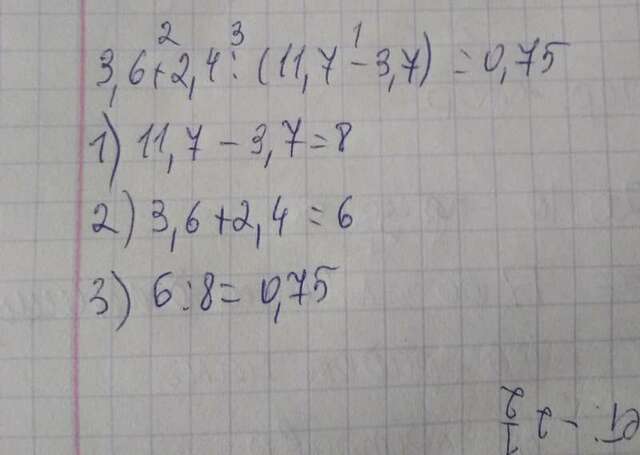 2 3 1
3,6+2,4:(11,7-3,7) = 0,75
1) 11,7 - 3,7 = 8
2) 3,6+2,4 = 6
3) 6:8 = 0,75